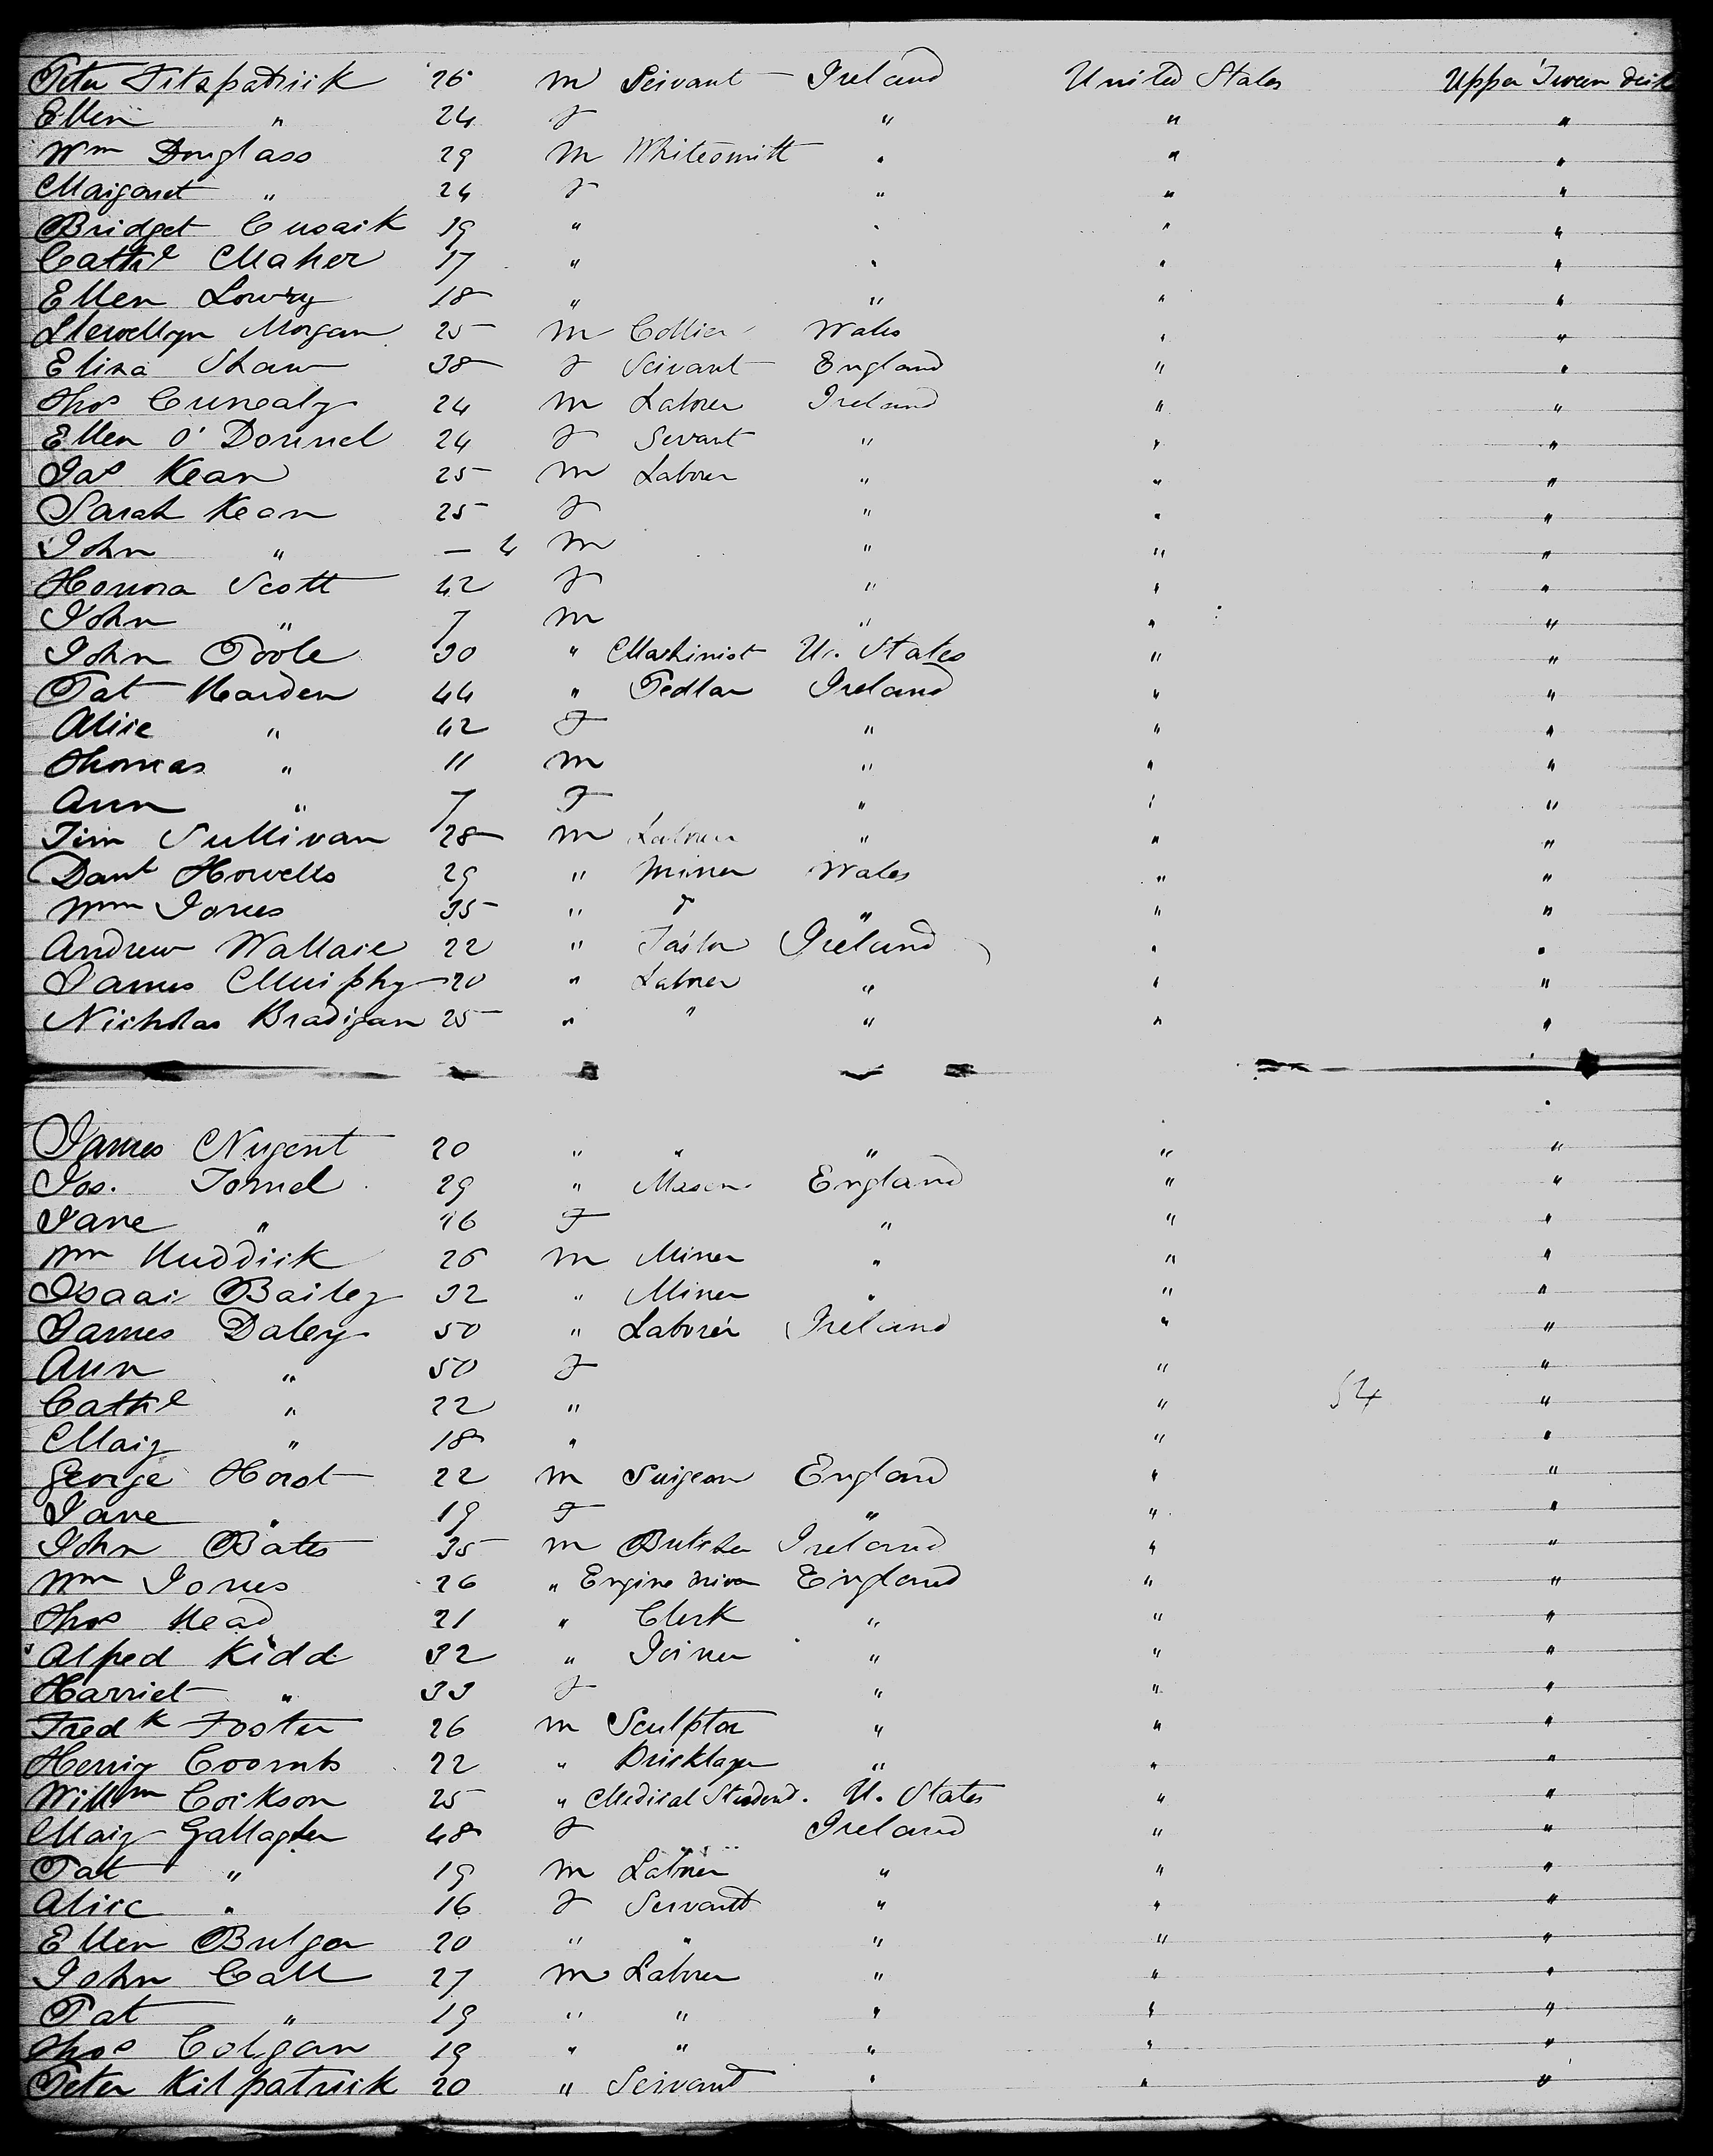 Peter Fitzpatrick 26 m Servant Ireland United States Upper Tween deck
Ellen " 24 f " " "
Wm Douglass 29 m Whitesmith " " "
Margaret " 24 f " " "
Bridget Cusack 19 " " " "
Cathe Maher 17 " " " "
Ellen Lowry 18 " " " "
Llewellyn Morgan 25 m Collier Wales " "
Eliza Shaw 38 f Servant England " "
Thos Cunealy 24 m Laborer Ireland " "
Ellen O'Donnel 24 f Servant " " "
Jas Kean 25 m Laborer " " "
Sarah Kean 25 f " " "
John " — 4 m " " "
Honora Scott 42 f " " "
John " 7 m " " "
John Poole 30 " Machinist U. States " "
Pat Harden 44 " Pedlar Ireland " "
Alice " 42 f " " "
Thomas " 11 m " " "
Ann " 7 f " " "
Tim Sullivan 28 m Laborer " " "
Danl Howells 29 " Miner Wales " "
Wm Jones 35 " " " " "
Andrew Wallace 22 " Tailor Ireland " "
James Murphy 20 " Laborer " " "
Nicholas Bradigan 25 " " " " "
James Nugent 20 " " " " "
Jos. Tornel 29 " Mason England " "
Jane " 26 f " " "
Wm Huddick 26 m Miner " " "
Isaac Bailey 32 " Miner " " "
James Daley 50 " Laborer Ireland " "
Ann " 50 f " "
Cathe " 22 " " 54 "
Mary " 18 " " "
George Horst 22 m Surgeon England " "
Jane " 19 f " " "
John Bates 35 m Butcher Ireland " "
Wm Jones 26 " Engine driver England " "
Thos Head 21 " Clerk " " "
Alfred Kidd 32 " Joiner " " "
Harriet " 33 f " " "
Fredk Foster 26 m Sculptor " " "
Henry Coombs 22 " Bricklayer " " "
Willm Corkson 25 " Medical Student. U. States " "
Mary Gallagher 48 f Ireland " "
Pat " 19 m Laborer " " "
Alice " 16 f Servant " " "
Ellen Bulger 20 " " " " "
John Call 27 m Laborer " " "
Pat " 19 " " " " "
Thos Colgan 19 " " " " "
Peter Kilpatrick 20 " Servant " " "